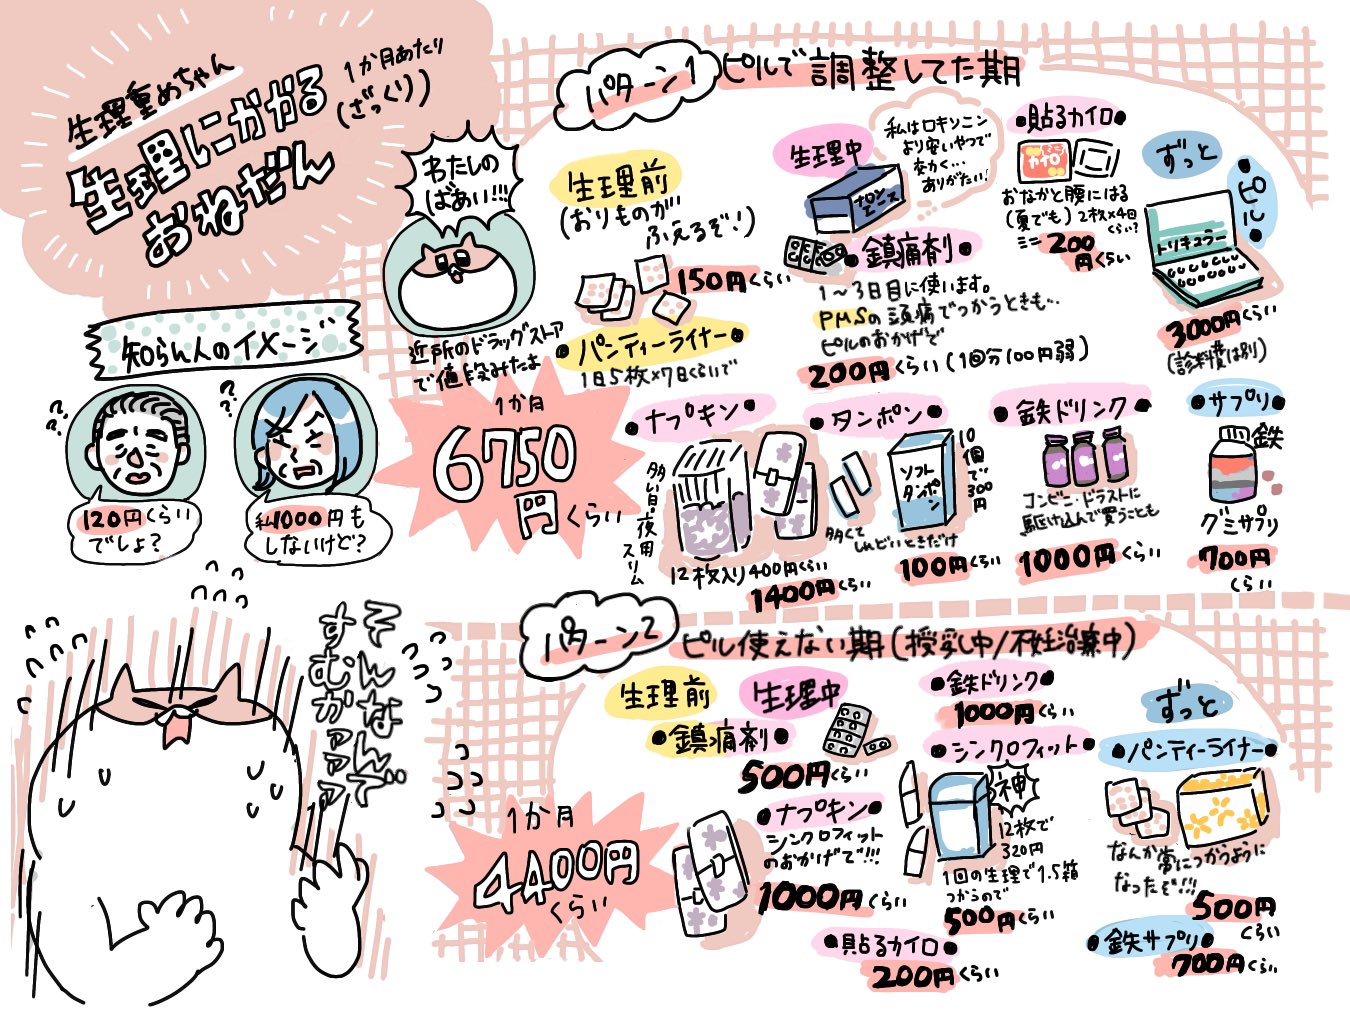 生理重めちゃん
生理にかかる
おねだん
1か月あたり
(ざっくり)
わたしの
ばあい!!!
近所のドラッグストア
で値段みたよ
知らん人のイメージ
120円くらい
でしょ?
私1000円も
しないけど?
そんなんで
すむかァァァ
パターン1
ピルで調整してた期
1か月
6750
円くらい
生理前
(おりものが
ふえるぞ!)
150円くらい
●パンティーライナー●
1日5枚×7日くらいで
生理中
私はロキソニン
より安いやつで
ありがたい!
ナロン
エース
●鎮痛剤●
1〜3日目に使います。
PMSの頭痛でつかうときも…
ピルのおかげで
200円くらい(1回分100円弱)
●貼るカイロ●
カイロ
おなかと腰にはる
(夏でも)2枚×4日
くらい?
ミニ 200
円くらい
ずっと
●ピル●
トリキュラー
3000円くらい
(診料費は別)
●ナプキン●
多い日・夜用
スリム
12枚入り400円くらい
1400円くらい
●タンポン●
ソフト
タンポン
10個で300円
多くて
しんどいときだけ
100円くらい
●鉄ドリンク●
コンビニ・ドラストに
駆け込んで買うことも
1000円くらい
●サプリ●
鉄
グミサプリ
700円
くらい
パターン2
ピル使えない期(授乳中/不妊治療中)
1か月
4400円
くらい
生理前
生理中
●鎮痛剤●
500円くらい
●ナプキン●
シンクロフィット
のおかげで!!!
1000円くらい
●貼るカイロ●
200円くらい
●鉄ドリンク●
1000円くらい
●シンクロフィット●
神
12枚で
320円
1回の生理で1.5箱
つかうので
500円くらい
ずっと
●パンティーライナー●
なんか常につかうように
なったぞ!!!
500円
くらい
●鉄サプリ●
700円くらい